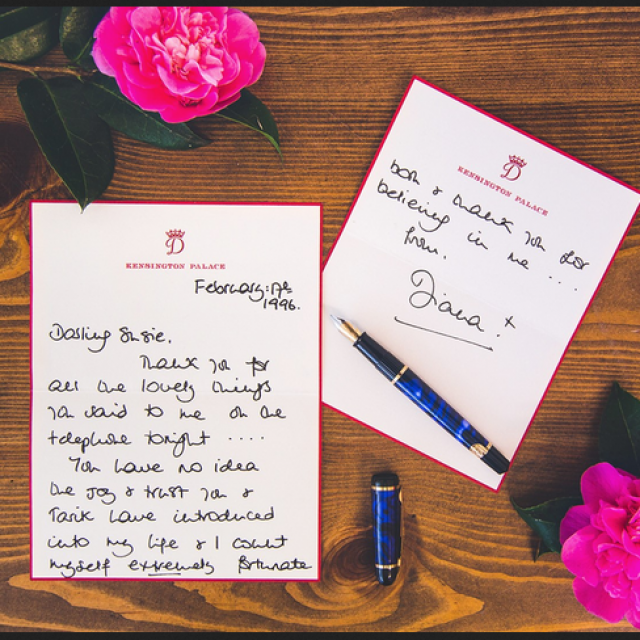 D
KENSINGTON PALACE
February: 17th
1996.
Darling Susie,
Thank you for
all the lovely things
you said to me on the
telephone tonight ....
You have no idea
the joy & trust you &
Tarik have introduced
into my life & I count
myself extremely fortunate
D
KENSINGTON PALACE
both & thank you for
believing in me ....
from.
Diana. x